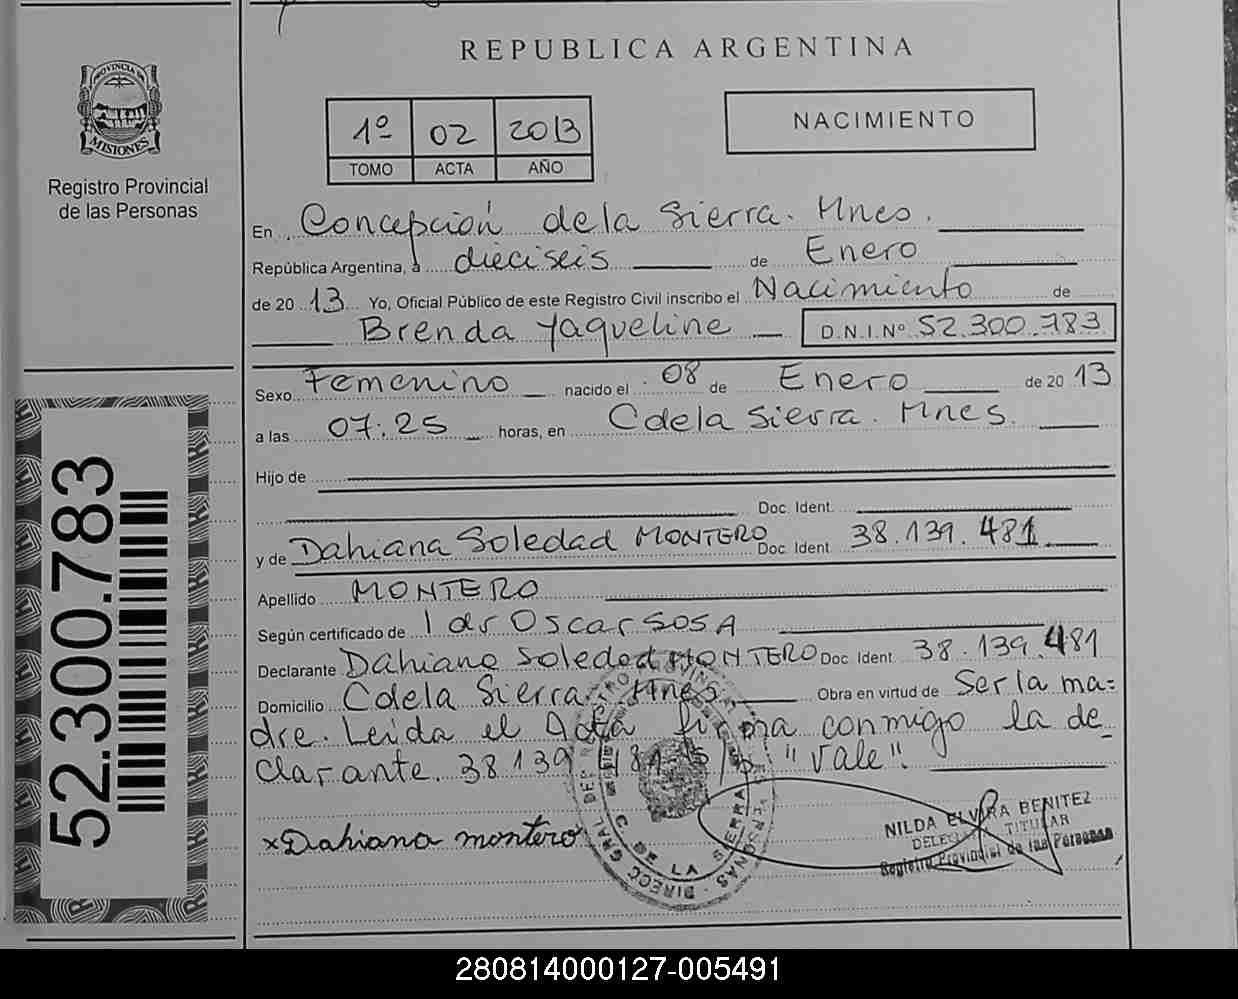 REPUBLICA ARGENTINA
PROVINCIA DE
MISIONES
Registro Provincial
de las Personas
1º 02 2013
TOMO ACTA AÑO
NACIMIENTO
En Concepción de la Sierra. Mnes.
República Argentina, a dieciseis de Enero
de 20 13 Yo, Oficial Público de este Registro Civil inscribo el Nacimiento de
Brenda Yaqueline D.N.I.Nº 52.300.783
Sexo Femenino nacido el 08 de Enero de 20 13
a las 07:25 horas, en C de la Sierra. Mnes.
Hijo de
Doc. Ident.
y de Dahiana Soledad MONTERO Doc. Ident 38.139.481
Apellido MONTERO
Según certificado de 1 dr Oscar SOSA
Declarante Dahiana Soledad MONTERO Doc. Ident. 38.139.481
Domicilio C de la Sierra. Mnes Obra en virtud de Ser la ma=
dre. Leida el Acta firma conmigo la de
clarante. 38.139.481 s/r "Vale".
x Dahiana montero
NILDA ELVIRA BENITEZ
TITULAR
Registro Provincial de las Personas
DE LA SIERRA
52.300.783
280814000127-005491